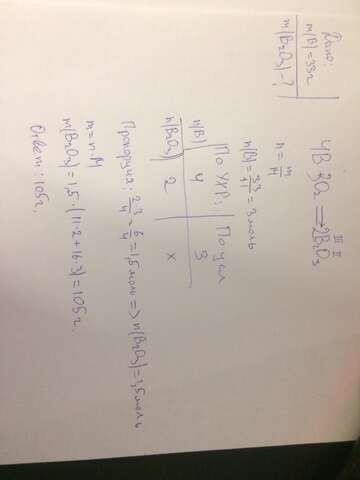 Дано:
m(B)=33г
m(B₂O₃)-?
III II
4B 3O₂ ⟹ 2B₂O₃
n = m/M
n(B) = 33/11 = 3 моль
По УХР: По усл
n(B) 4 3
n(B₂O₃) 2 x
Пропорция: 2·3/4 = 6/4 = 1,5 моль => n(B₂O₃)=1,5 моль
m=n·M
m(B₂O₃) = 1,5 · (11·2+16·3) = 105г.
Ответ: 105г.